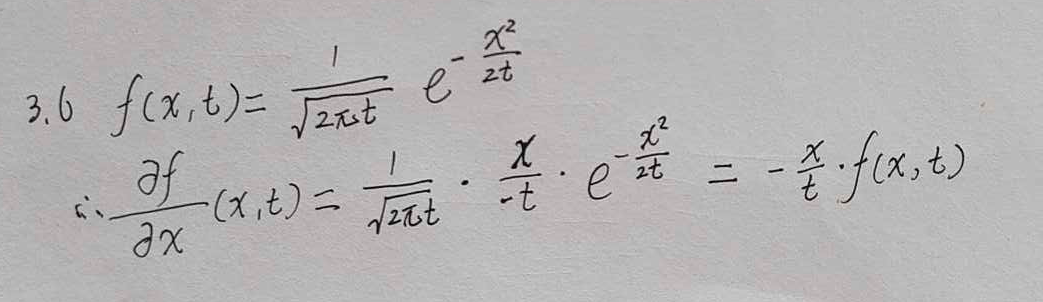 3.6 f(x,t)= \frac{1}{\sqrt{2πt}} e^{-\frac{x²}{2t}}
∴ \frac{∂f}{∂x}(x,t)= \frac{1}{\sqrt{2πt}} · \frac{x}{-t} · e^{-\frac{x²}{2t}} = -\frac{x}{t}·f(x,t)